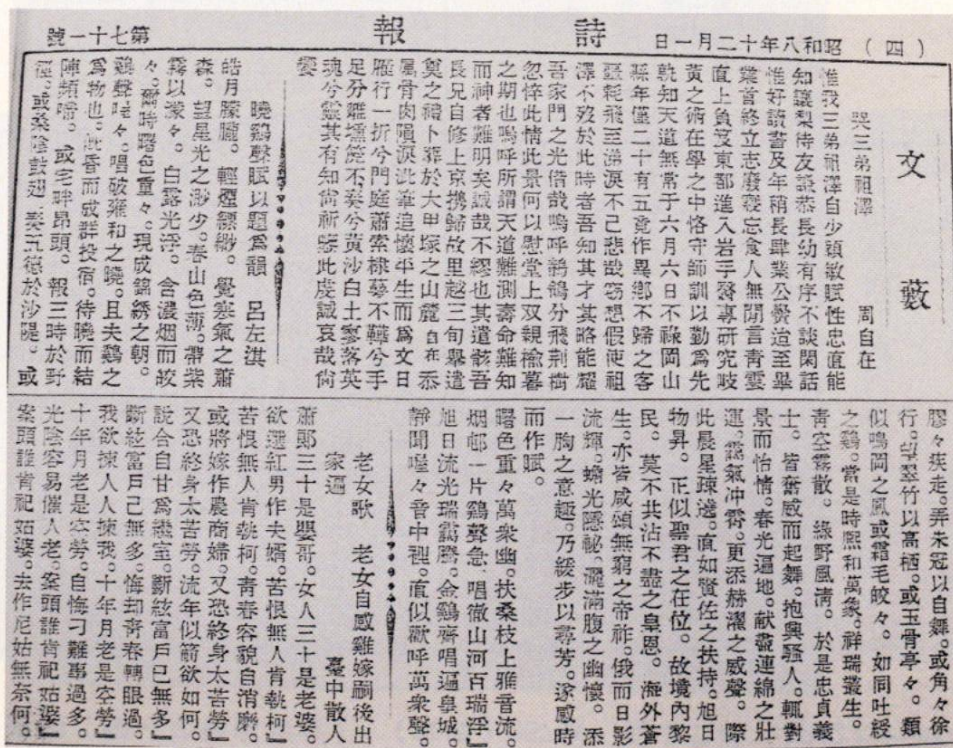 (四) 昭和八年十二月一日 詩報 第七十一號
文藪
哭三弟祖澤 周自在
惟我三弟祖澤自少穎敏賦性忠直能
知讓梨侍友謙恭長幼有序不談閑話
惟好讀書及年稍長肄業公黌造至畢
業首終立志廢寢忘食人無閒言青雲
直上負笈東都進入岩手醫專研究岐
黃之術在學之中恪守師訓以勤爲先
孰知天道無常于六月六日不祿岡山
縣年僅二十有五竟作異鄉不歸之客
噩耗飛至涕淚不已悲哉竊想假使祖
澤不歿於此時者吾知其才其略能耀
吾家門之光借哉嗚呼鶺鴒分飛荆樹
忽悴此情此景何以慰堂上双親榆暮
之期也嗚呼所謂天道難測壽命難知
而神者難明矣誠哉不繆也其遺骸吾
長兄自修上京攜歸故里越三旬舉遣
奠之禮卜葬於大甲塚之山麓自在忝
屬骨肉隕淚泚筆追懷平生而爲文曰
雁行一折兮門庭蕭索棣萼不韡兮手
足分離壎篪不奏兮黃沙白土寥落英
魂兮靈其有知尙祈鑒此虔誠哀哉尙
饗
曉鷄聲賦以題爲韻 呂左淇
皓月朦朧。輕煙縹緲。覺寒氣之蕭
森。望星光之渺少。春山色薄。帶紫
霧以濛々。白露光浮。含濃烟而皎
々。爾時曙色重々。現成錦綉之朝。
鷄聲哇々。唱破雍和之曉。且夫鷄之
爲物也。此昏而成群投宿。待曉而結
陣頻啼。或宅畔昂頭。報三時於野
徑。或桑陰鼓翅 奏五德於沙隄。或
膠々疾走。弄未冠以自舞。或角々徐
行。望翠竹以高栖。或玉骨亭々。類
似鳴岡之鳳或霜毛皎々。如同吐綬
之鷄。當是時熙和萬象。祥瑞叢生。
青空霧散。綠野風淸。於是忠貞義
士。皆奮感而起舞。抱興騷人。輒對
景而怡情。春光遍地。献盡連綿之壯
運。靄氣冲霄。更添赫濯之威聲。際
此晨星疎邊。直如賢佐之扶持。旭日
物昇。正似聖君之在位。故境內黎
民。莫不共沾不盡之皇恩。海外蒼
生。亦皆咸頌無窮之帝祚。俄而日影
流輝。蟾光隱祕。灑滿腹之幽懷。添
一胸之意趣。乃緩步以尋芳。遂感時
而作賦。
曙色重々萬衆幽。扶桑枝上雅音流。
烟郇一片鷄聲急。唱徹山河百瑞浮』
旭日流光瑞靄騰。金鷄齊唱遍皇城。
靜聞喔々音中裡。直似歡呼萬衆聲。
老女歌 老女自咸雞嫁嗣後出
家遁 臺中散人
蕭郎三十是嬰哥。女人三十是老婆。
欲選紅男作夫婿。苦恨無人肯執柯』
苦恨無人肯執柯。靑春容貌自消磨。
或將嫁作農商婦。又恐終身太苦勞』
又恐終身太苦勞。流年似箭欲如何。
說合自甘爲繼室。斷絃富戶已無多』
斷絃富戶已無多。悔却靑春轉眼過。
我欲揀人人揀我。十年月老是空勞』
十年月老是空勞。自悔刁難事過多。
光陰容易催人老。案頭誰肯祀姑婆』
案頭誰肯祀姑婆。去作尼姑無奈何。